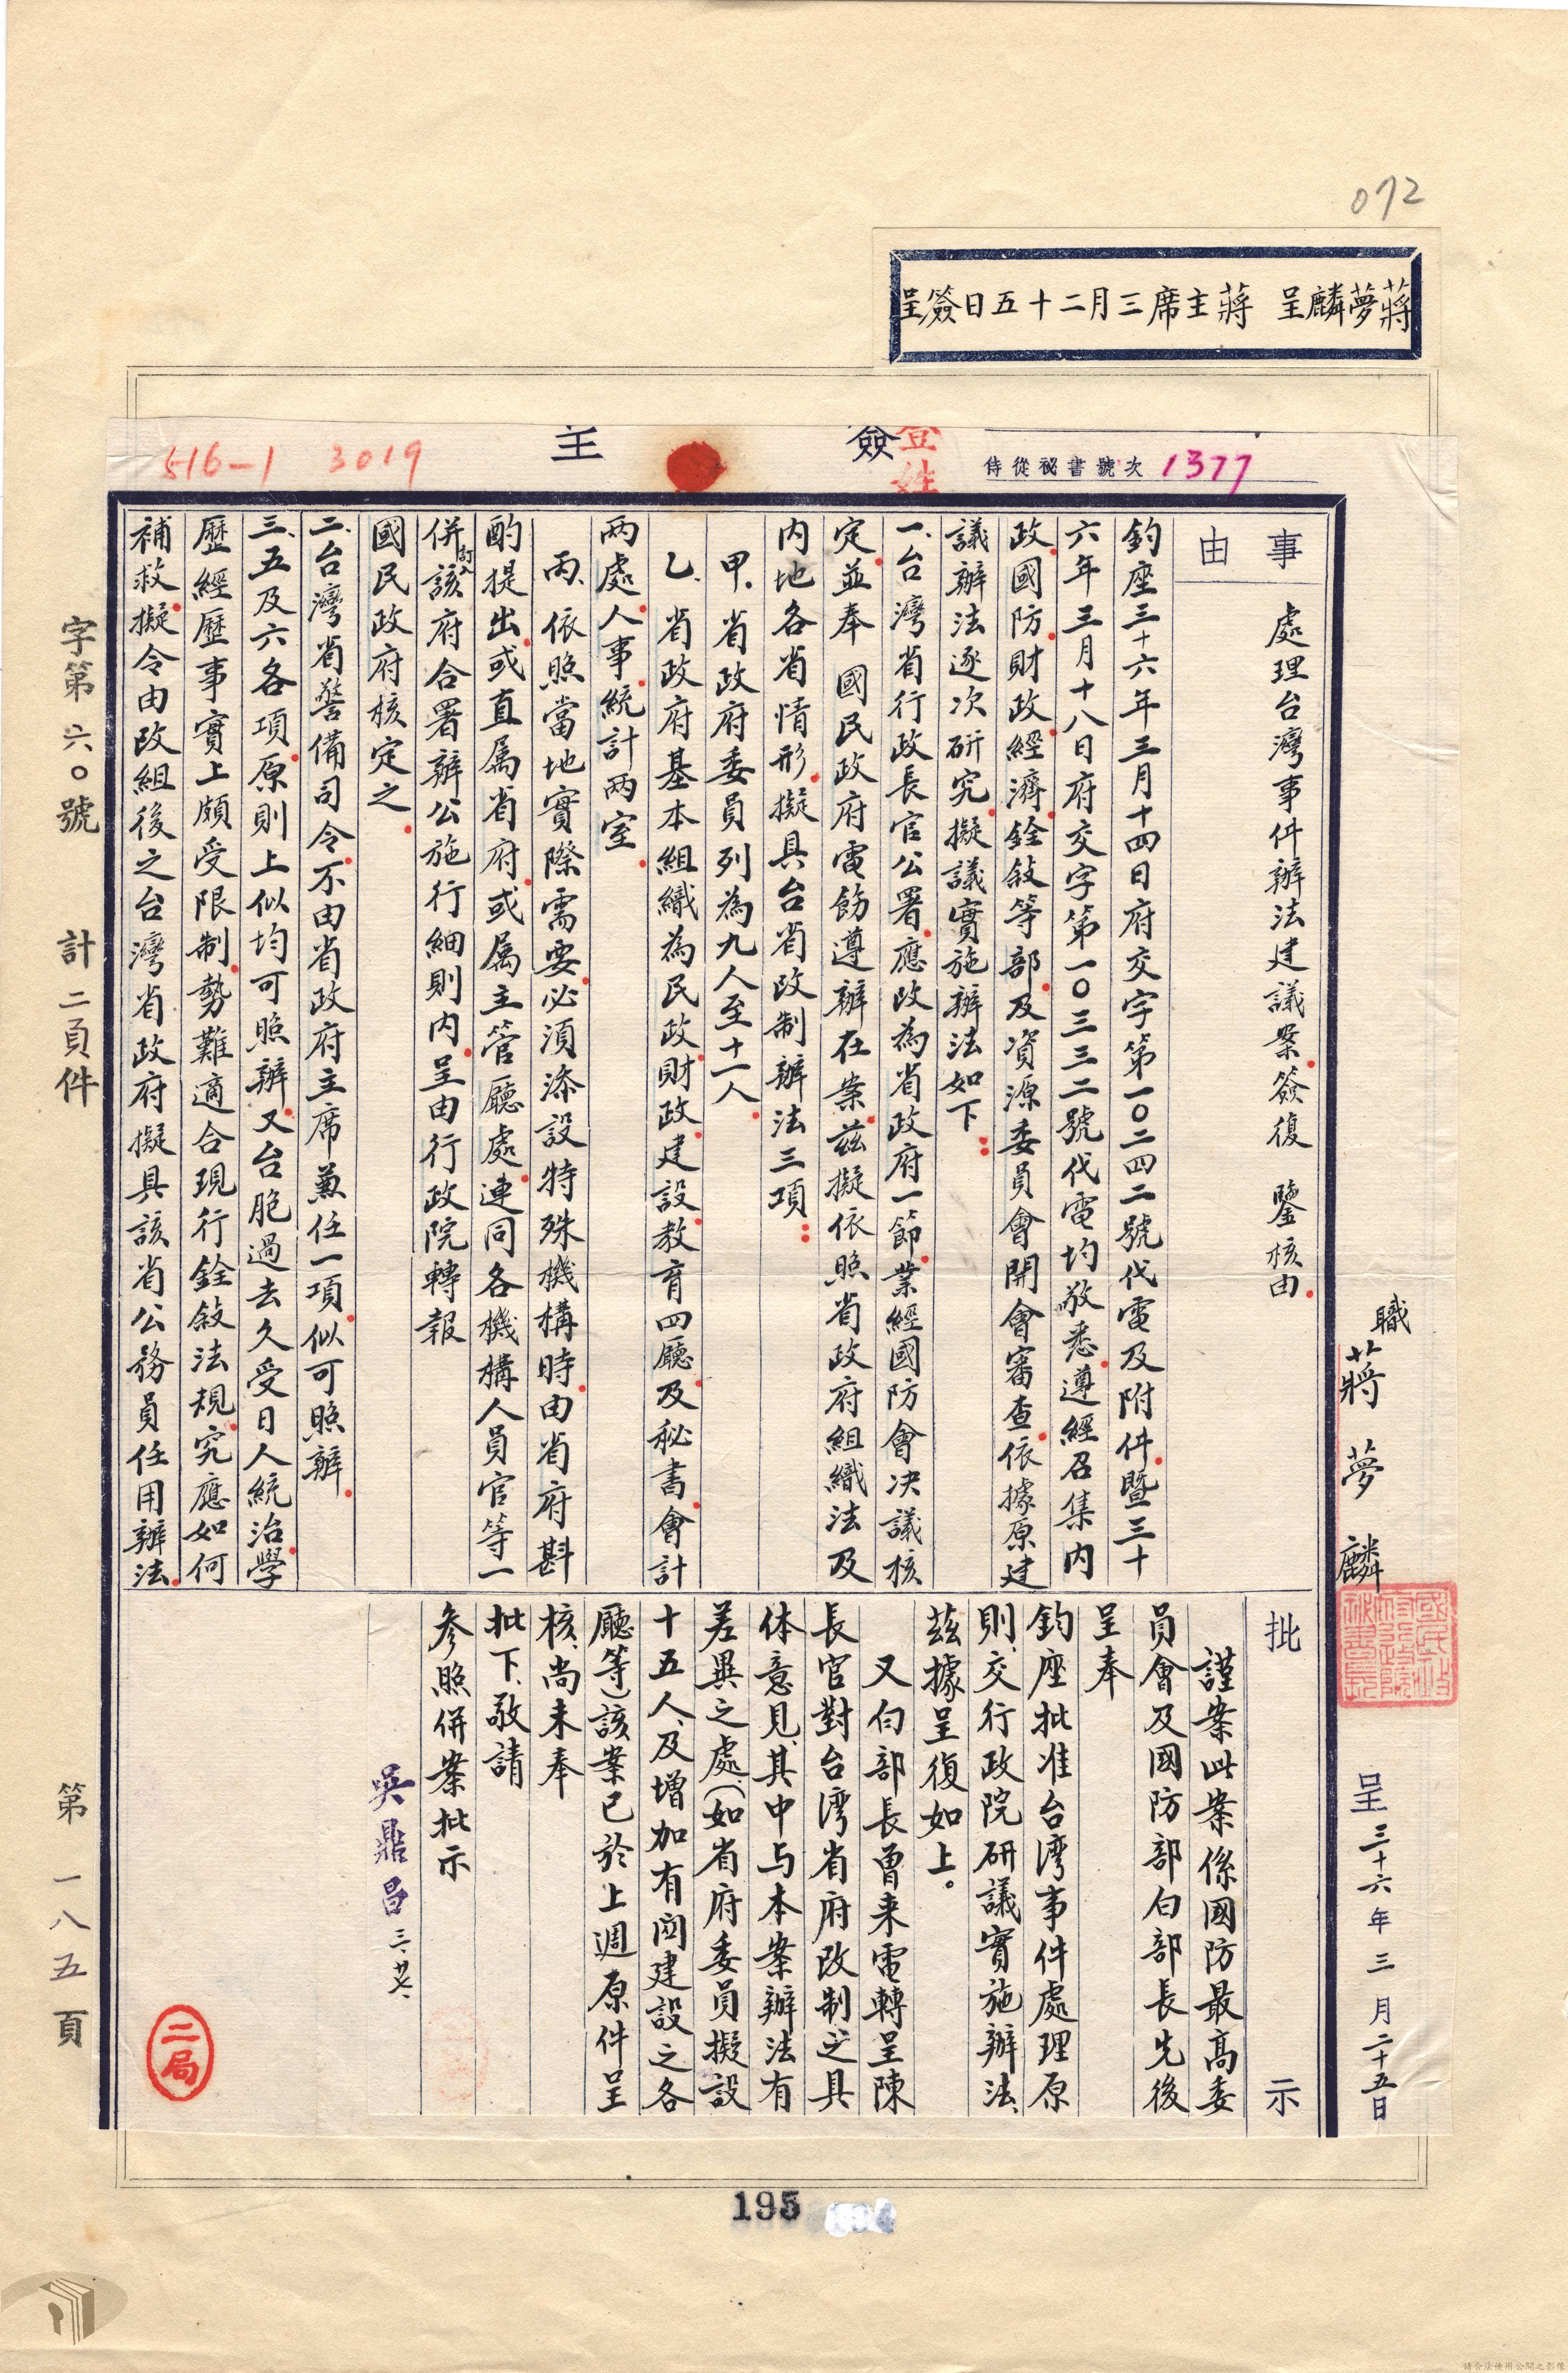 072
蔣夢麟呈 蔣主席三月二十五日簽呈
簽 呈
侍從秘書號次 1377
3019
516-1
職 蔣夢麟
呈 三十六年三月二十五日
事由
處理台灣事件辦法建議案簽復 鑒核由
鈞座三十六年三月十四日府交字第一〇二四二號代電及附件暨三十
六年三月十八日府交字第一〇三三二號代電均敬悉遵經召集內
政國防財政經濟銓敍等部及資源委員會開會審查依據原建
議辦法逐次研究擬議實施辦法如下
一、台灣省行政長官公署應改為省政府一節業經國防會決議核
定並奉 國民政府電飭遵辦在案茲擬依照省政府組織法及
內地各省情形擬具台省改制辦法三項
甲、省政府委員列為九人至十一人
乙、省政府基本組織為民政財政建設教育四廳及秘書會計
兩處人事統計兩室
丙、依照當地實際需要必須添設特殊機構時由省府斟
酌提出或直属省府或属主管廳處連同各機構人員官等一
併訂入該府合署辦公施行細則內呈由行政院轉報
國民政府核定之
二、台灣省警備司令不由省政府主席兼任一項似可照辦
三、五及六各項原則上似均可照辦又台胞過去久受日人統治學
歷經歷事實上頗受限制勢難適合現行銓敍法規究應如何
補救擬令由改組後之台灣省政府擬具該省公務員任用辦法
批示
謹案此案係國防最高委
員會及國防部白部長先後
呈奉
鈞座批准台灣事件處理原
則、交行政院研議實施辦法、
茲據呈復如上。
又白部長曾来電轉呈陳
長官對台灣省府改制之具
体意見、其中与本案辦法有
差異之處、(如省府委員擬設
十五人、及增加有関建設之各
廳等)該案已於上週原件呈
核、尚未奉
批下、敬請
參照併案批示
吳鼎昌 三、廿七、
二局
字第六〇號 計二頁件 第一八五頁
195
請合法使用公開之影像